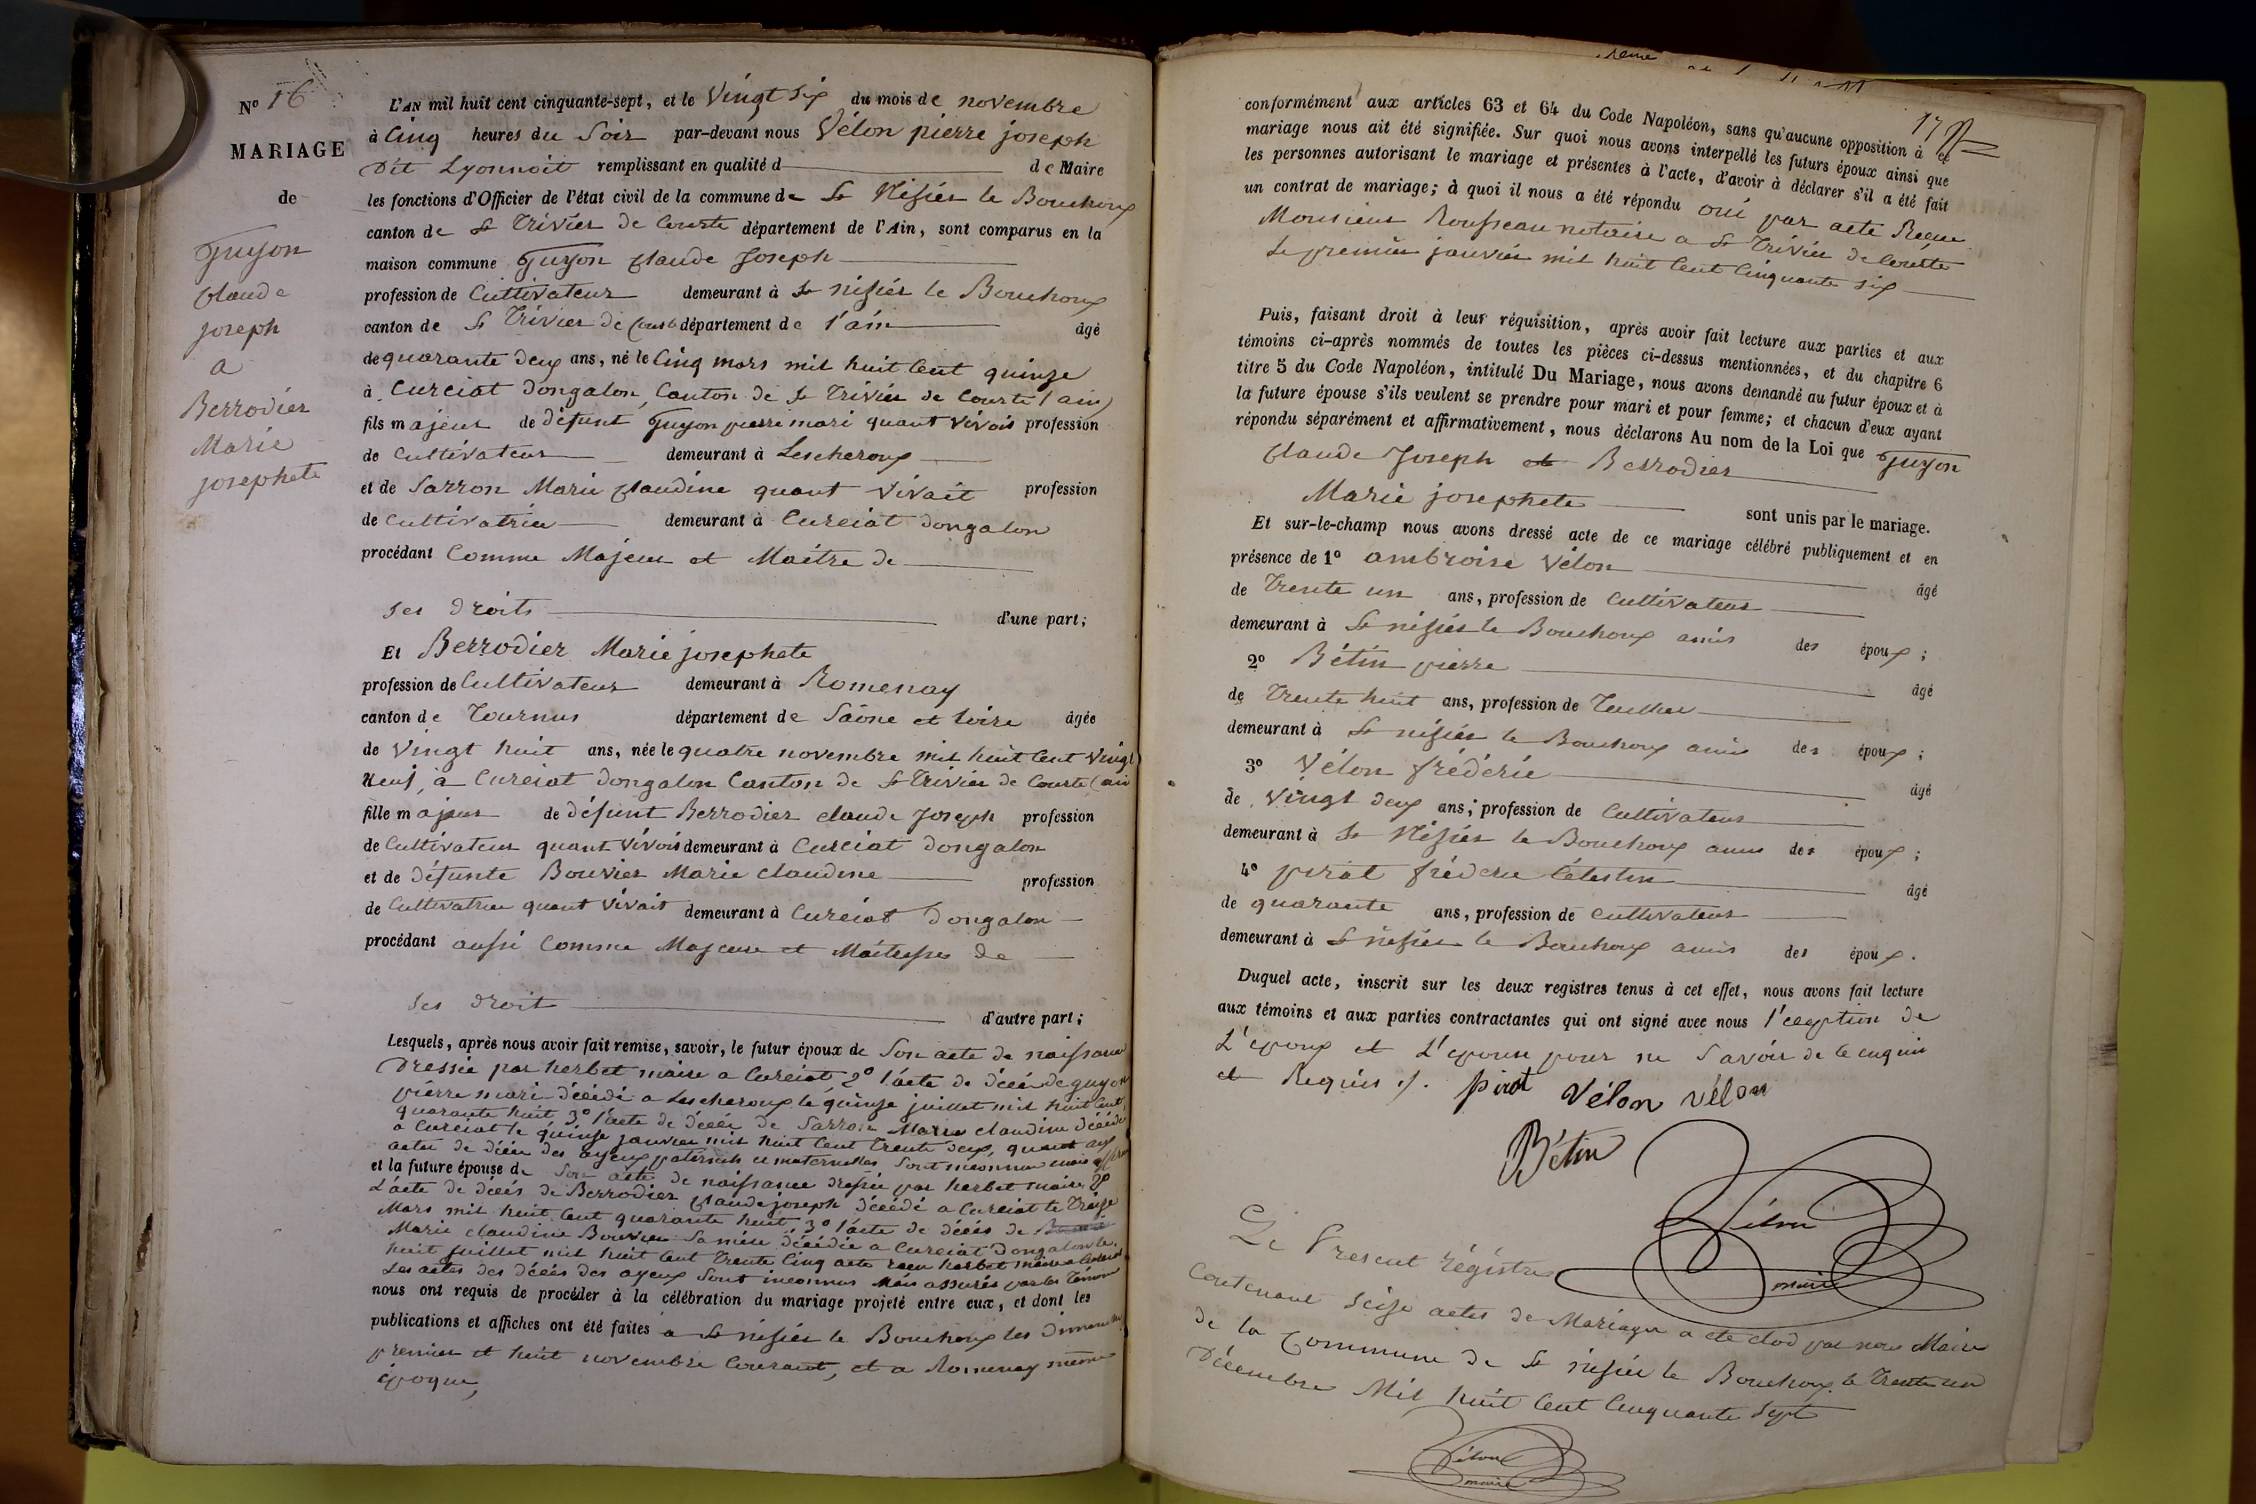 N° 16
MARIAGE
de
Guyon
Claude
joseph
a
Berrodier
Marie
josephete
L'AN mil huit cent cinquante-sept, et le vingt six du mois de novembre
à Cinq heures du Soir par-devant nous Vélon pierre joseph
Dit Lyonnoit remplissant en qualité d de Maire
les fonctions d'Officier de l'état civil de la commune de St Nisier le Bouchoux
canton de St Trivier de Courte département de l'Ain, sont comparus en la
maison commune Guyon Claude Joseph
profession de Cultivateur demeurant à St nisier le Bouchoux
canton de St Trivier de Courte département de l'ain âgé
de quarante deux ans, né le Cinq mars mil huit Cent quinze
à Curciat dongalon, Canton de St Trivier de Courte (ain)
fils majeur de défunt Guyon pierre mari quant vivois profession
de Cultivateur demeurant à Lescheroux
et de Sarron Marie Claudine quant vivait profession
de Cultivatrice demeurant à Curciat dongalon
procédant Comme Majeur et Maitre de
ses droits d'une part;
Et Berrodier Marie josephete
profession de Cultivateur demeurant à Romenay
canton de Tournus département de Saône et Loire âgée
de vingt huit ans, née le quatre novembre mil huit Cent vingt
neuf, à Curciat dongalon Canton de St Trivier de Courte (ain
fille majeur de défunt Berrodier claude Joseph profession
de Cultivateur quant vivois demeurant à Curciat dongalon
et de défunte Bouvier Marie claudine profession
de Cultivatrice quant vivait demeurant à Curciat Dongalon
procédant aussi Comme Majeure et Maitresses de
ses droit d'autre part;
Lesquels, après nous avoir fait remise, savoir, le futur époux de Son acte de naissance
Dressée par herbet maire a Curciat 2° l'acte de décée de guyon
pierre mari décédé a Lescheroux le quinze juillet mil huit Cent
quarante huit 3° l'acte de décée de Sarron Marie claudine décédée
a Curciat le quinze janvier mil huit Cent trente deux, quant aux
actes de décée des ayeux paternels et maternelles, Sont inconnus mais
et la future épouse de Son acte de naissance dressée par herbet maire, 2°
L'acte de décés de Berrodier Claude joseph décédé a Curciat le treize
Mars mil huit Cent quarante huit, 3° l'acte de décés de
Marie claudine Bouvier Sa mère décédée a Curciat Dongalon le
huit juillet mil huit Cent trente Cinq acte reçu herbet maire a Curciat
Les actes des décés des ayeux Sont inconnus Mais assurés par les témoins
nous ont requis de procéder à la célébration du mariage projeté entre eux, et dont les
publications et affiches ont été faites a St nisier le Bouchoux les dimanches
premier et huit novembre Courant, et a Romenay même
époque,
17
conformément aux articles 63 et 64 du Code Napoléon, sans qu'aucune opposition à ce
mariage nous ait été signifiée. Sur quoi nous avons interpellé les futurs époux ainsi que
les personnes autorisant le mariage et présentes à l'acte, d'avoir à déclarer s'il a été fait
un contrat de mariage; à quoi il nous a été répondu oui par acte Reçue
Monsieur Rousseau notaire a St Trivier de Courte
Le premier janvier mil huit Cent Cinquante six
Puis, faisant droit à leur réquisition, après avoir fait lecture aux parties et aux
témoins ci-après nommés de toutes les pièces ci-dessus mentionnées, et du chapitre 6
titre 5 du Code Napoléon, intitulé Du Mariage, nous avons demandé au futur époux et à
la future épouse s'ils veulent se prendre pour mari et pour femme; et chacun d'eux ayant
répondu séparément et affirmativement, nous déclarons Au nom de la Loi que Guyon
Claude Joseph et Berrodier
Marie josephete sont unis par le mariage.
Et sur-le-champ nous avons dressé acte de ce mariage célébré publiquement et en
présence de 1° ambroise Vélon âgé
de Trente un ans, profession de Cultivateur
demeurant à St nisier le Bouchoux amis des époux;
2° Bétin pierre âgé
de Trente huit ans, profession de
demeurant à St nisier le Bouchoux amis des époux;
3° Vélon fréderic âgé
de vingt deux ans; profession de Cultivateur
demeurant à St Nisier le Bouchoux amis des époux;
4° pirat fréderic Célestin âgé
de quarante ans, profession de Cultivateur
demeurant à St nisier le Bouchoux amis des époux.
Duquel acte, inscrit sur les deux registres tenus à cet effet, nous avons fait lecture
aux témoins et aux parties contractantes qui ont signé avec nous l'éception de
L'epoux et L'epouse pour ne Savoir de ce enquis
et Requis ./. pirat Vélon vélon
Bétin
Vélon
maire
Le Present régistre
Contenant seize actes de Mariage a été clod par nous Maire
de la Commune de St nisier le Bouchoux le trente un
Décembre Mil huit Cent Cinquante sept
Vélon
maire